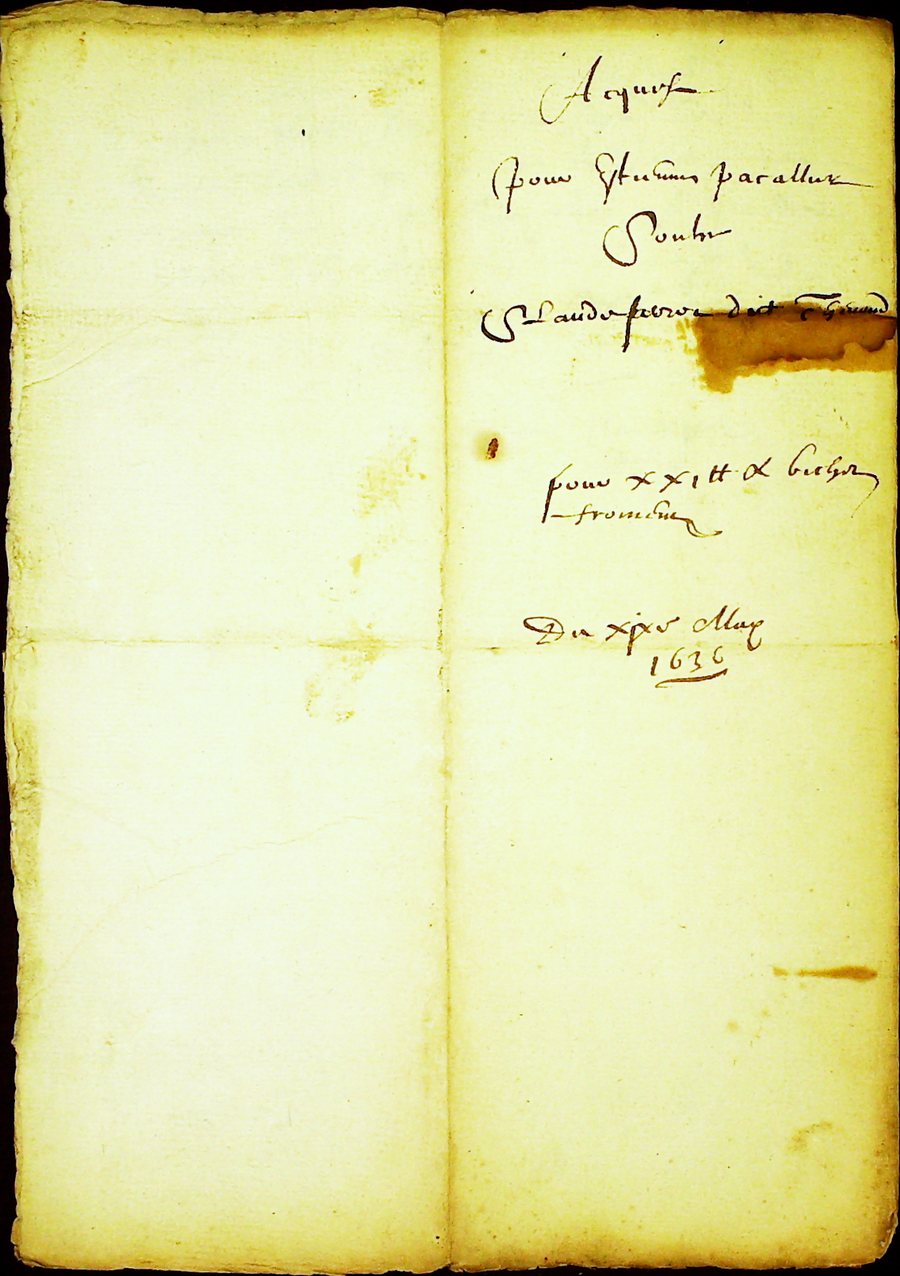 Acquis
pour Estienne pacallet
Contre
Claude favre dict
pour xxi tt & bichet
froment
Du xixe May
1636